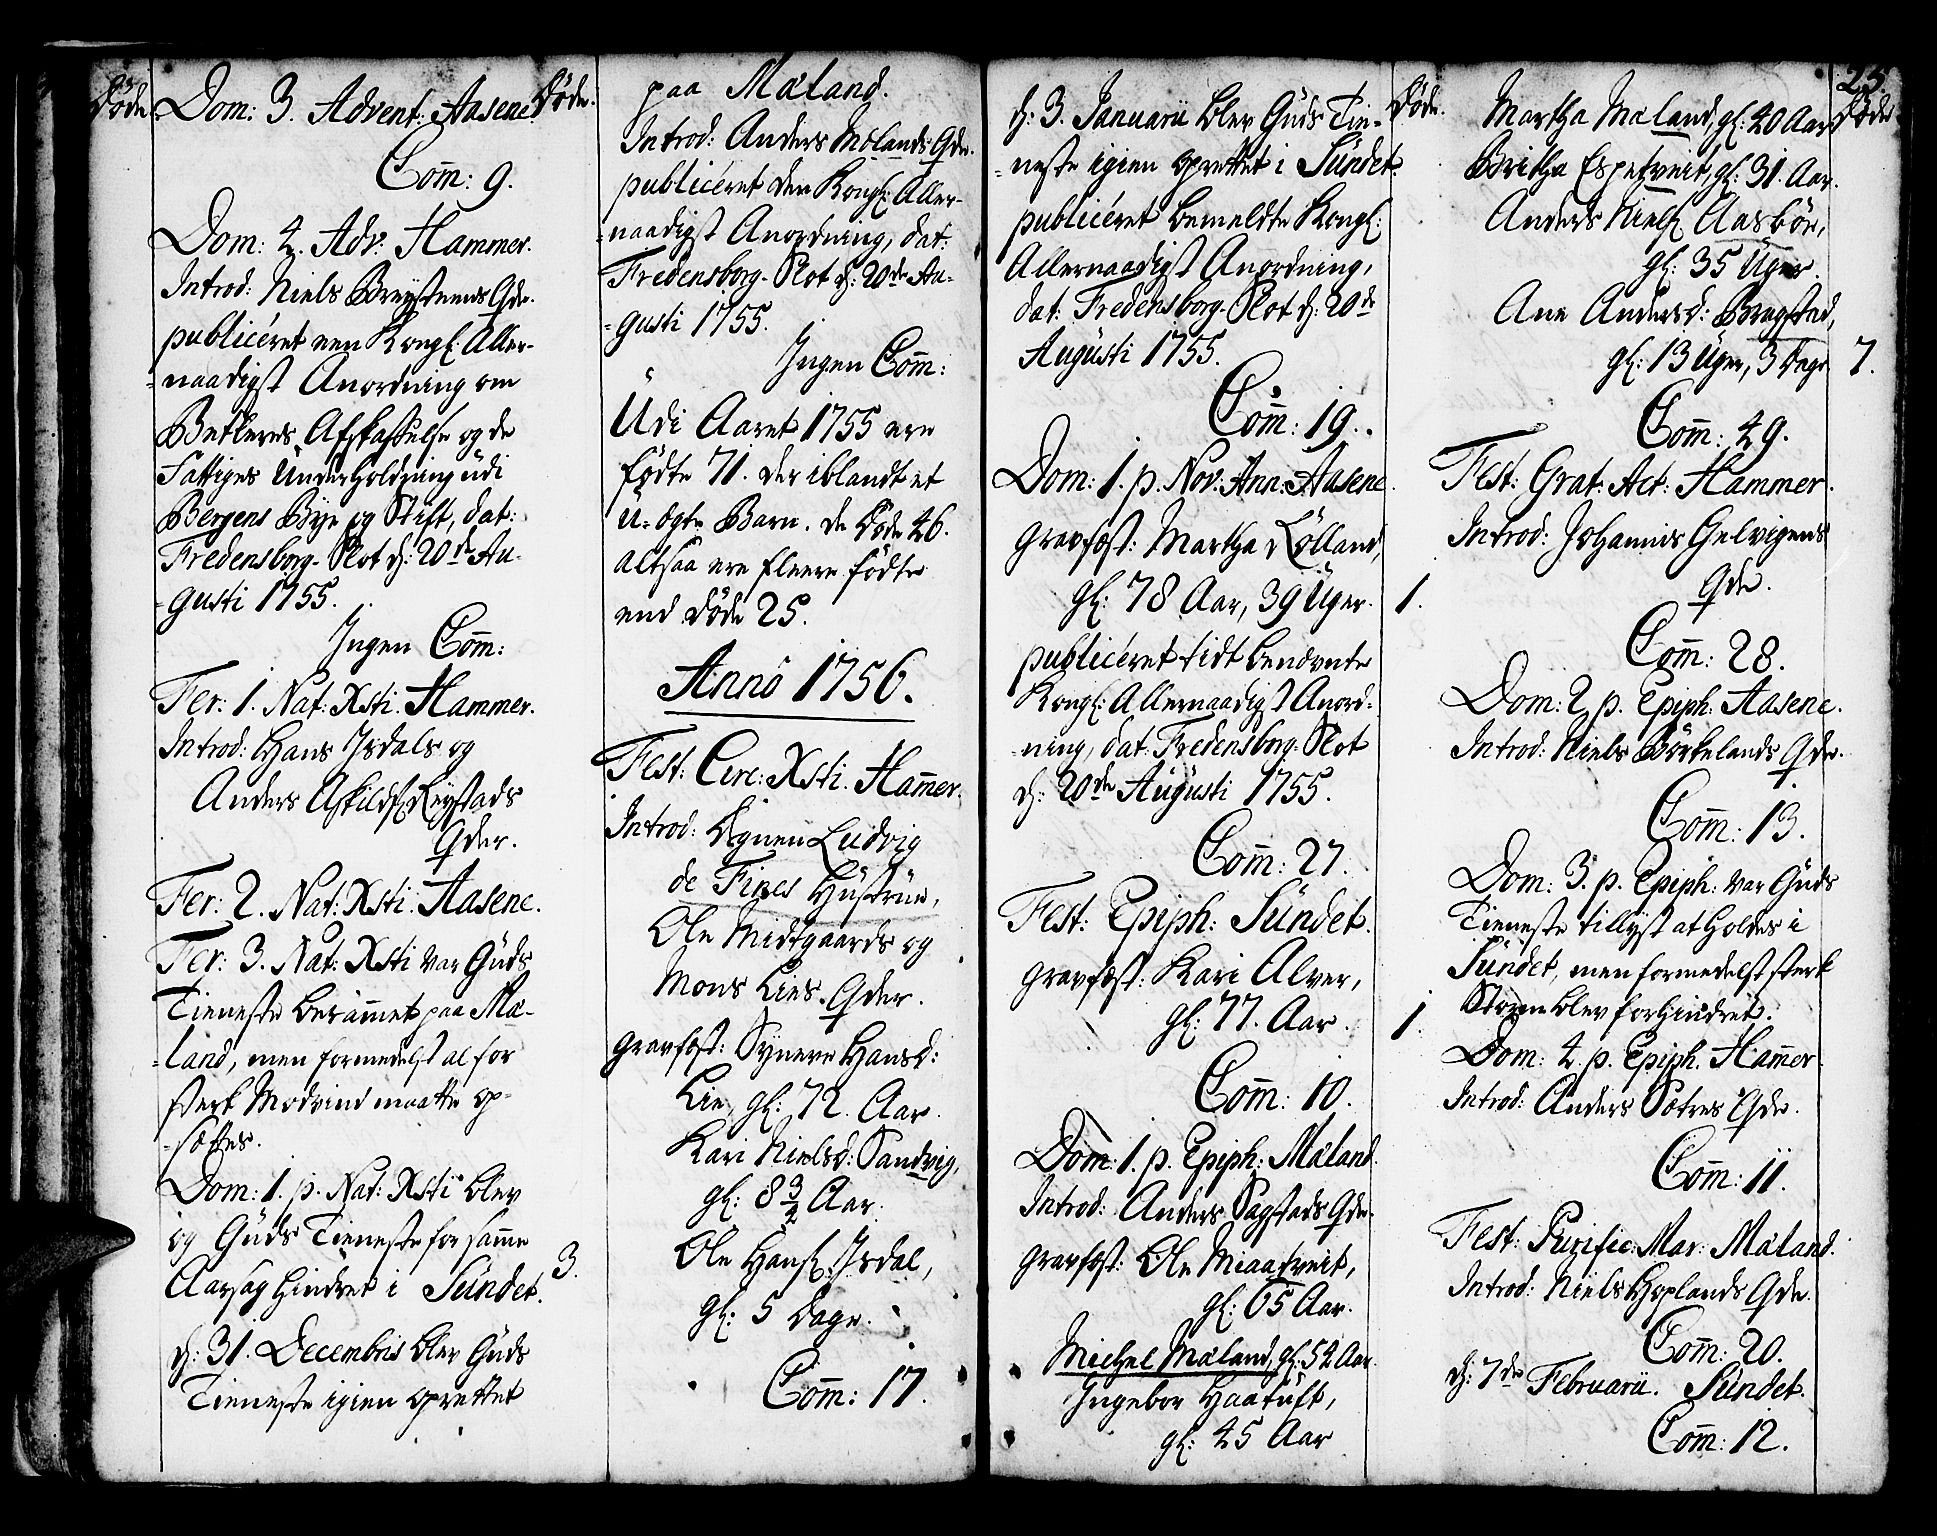 Døde
Dom: 3. Advent: Aasene.
Com̄: 9.
Dom: 4. Adv: Hammer.
Introd: Niels Brejsteens Qde.
publicéret een Kongl: Aller-
-naadigst Anordning om
Betleres Afskaffelse og de
Fattiges Underholdning udi
Bergens Bye og Stift, dat:
Fredensborg-Slot d: 20de Au-
-gusti 1755.
Ingen Com̄:
Fer: 1. Nat: Xsti. Hammer.
Introd: Hans Isdals og
Anders Askildss: Leystads
Qder.
Fer: 2. Nat: Xsti. Aasene.
Fer: 3. Nat: Xsti var Guds
Tieneste beram̄et paa Mæ-
-land, men formedelst al for
sterk Modvind maatte op-
-sættes.
Dom: 1. p. Nat: Xsti blev
og Guds Tieneste for sam̄e
Aarsag hindret i Sundet.
d: 31. Decembris blev Guds
Tieneste igien oprettet
Døde.
3.
paa Mæland.
Introd: Anders Mølands Qde.
publicéret den Kongl: Aller-
-naadigst Anordning, dat:
Fredensborg-Slot d: 20de Au-
-gusti 1755.
Ingen Com̄:
Udi Aaret 1755 ere
fødte 71. der iblandt et
u-ægte Barn. De Døde 46.
altsaa ere fleere fødte
end døde 25.
Anno 1756.
Fest: Circ: Xsti. Ham̄er.
Introd: Degnen Ludvig
de Fines Hustrue,
Ole Midtgaards og
Mons Lies Qder.
Gravfæst: Syneve Hansd:
Lie, gl: 72 Aar.
Kari Nielsd: Sandvig,
gl: 8 3/4 Aar.
Ole Hanss: Isdal,
gl: 5 Dage.
Com̄: 17.
d: 3. Januarii blev Guds Tie-
-neste igien oprettet i Sundet.
publicéret bemeldte Kongl:
Allernaadigst Anordning,
dat: Fredensborg-Slot d: 20de
Augusti 1755.
Com̄: 19.
Dom: 1. p. Nov: Ann: Aasene.
Gravfæst: Martha Lølland,
gl: 78 Aar, 39 Uger.
publicéret tidt benævnte
Kongl: Allernaadigst Anord-
-ning, dat: Fredensborg-Slot
d: 20de Augusti 1755.
Com̄: 27.
Fest: Epiph: Sundet.
Gravfæst: Kari Alver,
gl: 77. Aar.
Com̄: 10.
Dom: 1. p. Epiph: Mæland.
Introd: Anders Sagstads Qde.
Gravfæst: Ole Miaatveit,
gl: 65 Aar.
Michel Mæland, gl: 52 Aar.
Ingebor Haatuft,
gl: 45 Aar
Døde.
1.
1.
25.
Martha Mæland, gl: 40 Aar
Britha Espetveit, gl: 31. Aar.
Anders Nielss: Aasbøe,
gl: 35 Uger.
Ane Andersd: Bregstad,
gl: 13 Uger, 3 Dage
Com̄: 49.
Fest: Grat: Act: Hammer.
Introd: Johannis Gelvigens
Qde.
Com̄: 28.
Dom: 2 p. Epiph: Aasene.
Introd: Niels Børkelands Qde.
Com̄: 13.
Dom: 3. p. Epiph: var Guds
Tieneste tillyst at holdes i
Sundet, men formedelst sterk
Storm blev forhindret.
Dom: 4 p. Epiph. Ham̄er.
Introd: Anders Sætres Qde.
Com̄: 11.
Fest: Purific: Mar: Mæland.
Introd: Niels Hoplands Qde.
Com̄: 20.
d: 7de Februarii. Sundet.
Com̄: 12.
Døde
7.